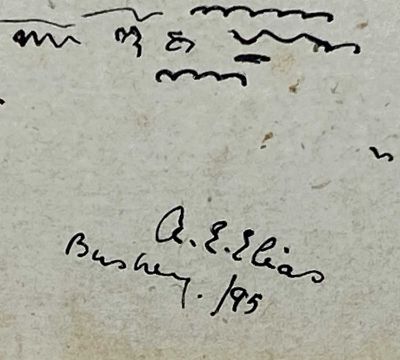 A. E. Elias
Bushey. /95